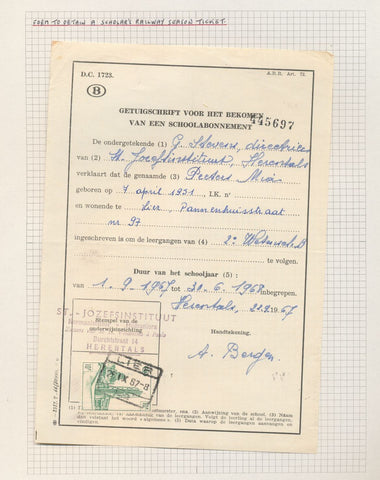 FORM TO OBTAIN A SCHOLAR'S RAILWAY SEASON TICKET.
D.C. 1723.
A.R.R. Art. 72.
B
GETUIGSCHRIFT VOOR HET BEKOMEN
VAN EEN SCHOOLABONNEMENT
445697
De ondergetekende (1) G. Stevens, directrice
van (2) St. Jozefsinstituut, Herentals
verklaart dat de genaamde (3) Peeters Mia
geboren op 7 april 1951, I.K. n°
en wonende te Lier, Pannenhuisstraat
nr 97
ingeschreven is om de leergangen van (4) 2e Wetensch. B
te volgen.
Duur van het schooljaar (5) :
van 1.9.1967 tot 30.6.1968 inbegrepen.
Herentals, 1967
ST.-JOZEFSINSTITUUT
Stempel van de
onderwijsinrichting
Burchtstraat 14
HERENTALS
Handtekening,
A. Bergen
LIER
IX 67-8
(1)
(2) Aanwijzing van de school. (3) Naam
van de leergangen. Volgt de leerling al de leergangen,
dan volstaat het woord « algemene ». (5) Data waarop de leergangen aanvangen en
eindigen.